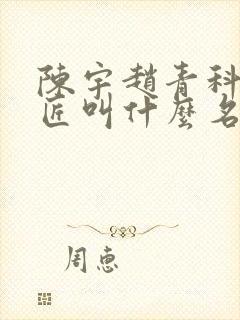 陳宇趙青科
匠叫什麼名
周惠